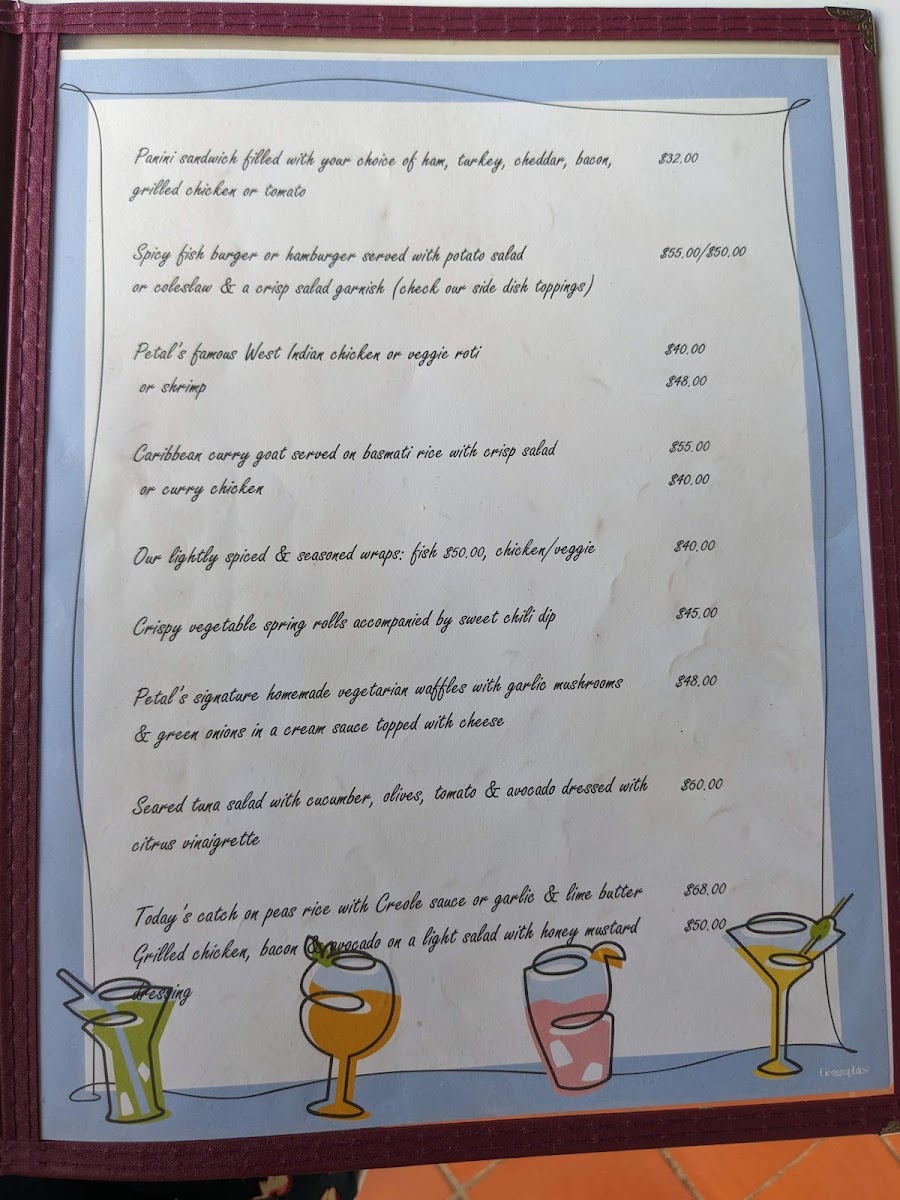 Panini sandwich filled with your choice of ham, turkey, cheddar, bacon, $32.00
grilled chicken or tomato
Spicy fish burger or hamburger served with potato salad $55.00/$50.00
or coleslaw & a crisp salad garnish (check our side dish toppings)
Petal's famous West Indian chicken or veggie roti $40.00
or shrimp $48.00
Caribbean curry goat served on basmati rice with crisp salad $55.00
or curry chicken $40.00
Our lightly spiced & seasoned wraps: fish $50.00, chicken/veggie $40.00
Crispy vegetable spring rolls accompanied by sweet chili dip $45.00
Petal's signature homemade vegetarian waffles with garlic mushrooms $48.00
& green onions in a cream sauce topped with cheese
Seared tuna salad with cucumber, olives, tomato & avocado dressed with $60.00
citrus vinaigrette
Today's catch on peas rice with Creole sauce or garlic & lime butter $68.00
Grilled chicken, bacon & avocado on a light salad with honey mustard $50.00
dressing
Geographics